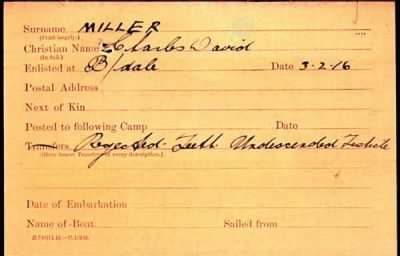 Surname MILLER
(Print largely.)
Christian Name Charles David
(In full.)
Enlisted at B/dale Date 3-2-16
Postal Address
Next of Kin
Posted to following Camp Date
Transfers Rejected - Teeth. Undescended Testicle
(Here insert Transfers of every description.)
Date of Embarkation
Name of Boat Sailed from